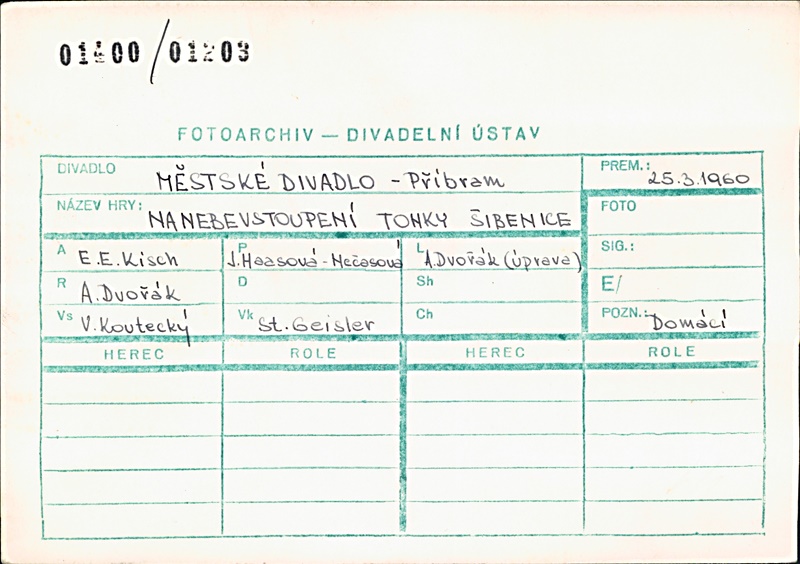 01400/01203
FOTOARCHIV — DIVADELNÍ ÚSTAV
DIVADLO MĚSTSKÉ DIVADLO - Příbram
PREM.: 25.3.1960
NÁZEV HRY: NANEBEVSTOUPENÍ TONKY ŠIBENICE
FOTO
A E.E.Kisch P J.Haasová-Nečasová L A.Dvořák (úprava)
SIG.:
R A.Dvořák D Sh
E/
Vs V.Koutecký Vk St.Geisler Ch
POZN.: Domácí
HEREC ROLE HEREC ROLE